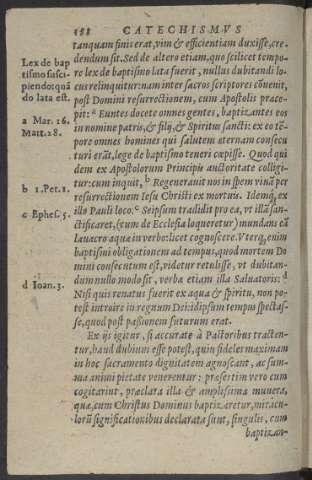 158 CATECHISMVS
tanquam finis erat, vim & efficientiam duxisse, cre-
dendum sit. Sed de altero etiam, quo scilicet tempo-
Lex de bap
re lex de baptismo lata fuerit, nullus dubitandi lo-
tismo susci-
cus relinquitur: nam inter sacros scriptores cōuenit,
piendo: quā
post Domini resurrectionem, cum Apostolis præce-
do lata est.
pit: ᵃ Euntes docete omnes gentes, baptizantes eos
a Mar. 16.
in nomine patris, & filij, & Spiritus sancti: ex eo tē-
Matt. 28.
pore omnes homines qui salutem æternam consecu-
turi erāt, lege de baptismo teneri cœpisse. Quod qui
dem ex Apostolorum Principis auctoritate colligi-
tur: cum inquit, ᵇ Regenerauit nos in spem viuā per
b 1. Pet. 1.
resurrectionem Iesu Christi ex mortuis. Idemq́; ex
illo Pauli loco. ᶜ Seipsum tradidit pro ea, vt illā san-
c Ephes. 5.
ctificaret, (eum de Ecclesia loqueretur) mundans eā
lauacro aquæ in verbo: licet cognoscere. Vterq; enim
baptismi obligationem ad tempus, quod mortem Do
mini consecutum est, videtur retulisse, vt dubitan-
dum nullo modo sit, verba etiam illa Saluatoris: ᵈ
d Ioan. 3.
Nisi quis renatus fuerit ex aqua & spiritu, non po-
test introire in regnum Dei: idipsum tempus spectas-
se, quod post passionem futurum erat.
Ex ijs igitur, si accurate à Pastoribus tracten-
tur, haud dubium esse potest, quin fideles maximam
in hoc sacramento dignitatem agnoscant, ac sum-
ma animi pietate venerentur: præsertim vero cum
cogitarint, præclara illa & amplissima munera,
quæ, cum Christus Dominus baptizaretur, miracu-
lorū significationibus declarata sunt, singulis, cum
baptizan-